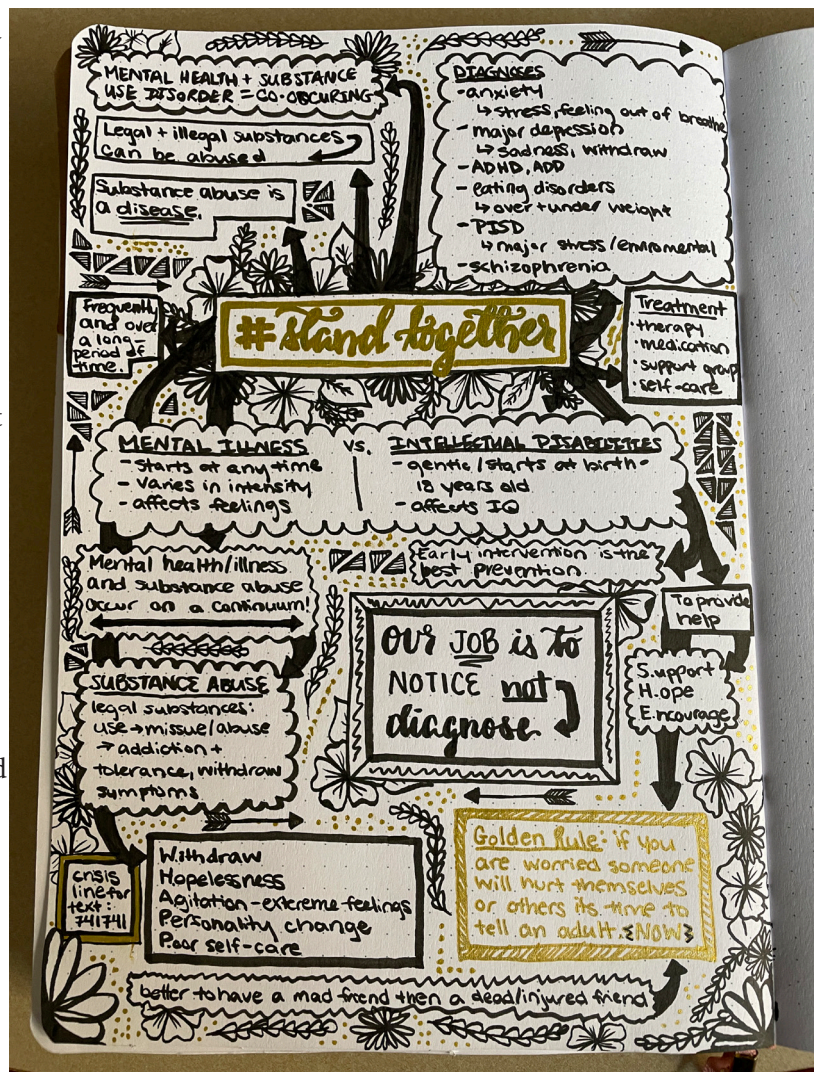 MENTAL HEALTH + SUBSTANCE
USE DISORDER = CO-OBCURING
Legal + illegal substances
can be abused
Substance abuse is
a disease.
DIAGNOSES
- anxiety
↳ stress, feeling out of breathe
- major depression
↳ sadness, withdraw
- ADHD, ADD
- eating disorders
↳ over + under weight
- PTSD
↳ major stress/enviromental
- schizophrenia
Frequently
and over
a long-
period of
time.
#stand together
Treatment
· therapy
· medication
· support group
· self-care
MENTAL ILLNESS vs. INTELLECTUAL DISABILITIES
- starts at any time
- varies in intensity
- affects feelings
- gentic/starts at birth-
18 years old
- affects IQ
Mental health/illness
and substance abuse
occur on a continuum!
Early intervention is the
best prevention.
To provide
help
S.upport
H.ope
E.ncourage
OUR JOB is to
NOTICE not
diagnose.
SUBSTANCE ABUSE
legal substances:
use → missue/abuse
→ addiction +
tolerance, withdraw
symptoms
crisis
line for
text:
741741
Withdraw
Hopelessness
Agitation - extreme feelings
Personality change
Poor self-care
Golden Rule: if you
are worried someone
will hurt themselves
or others its time to
tell an adult {NOW}
better to have a mad friend then a dead/injured friend